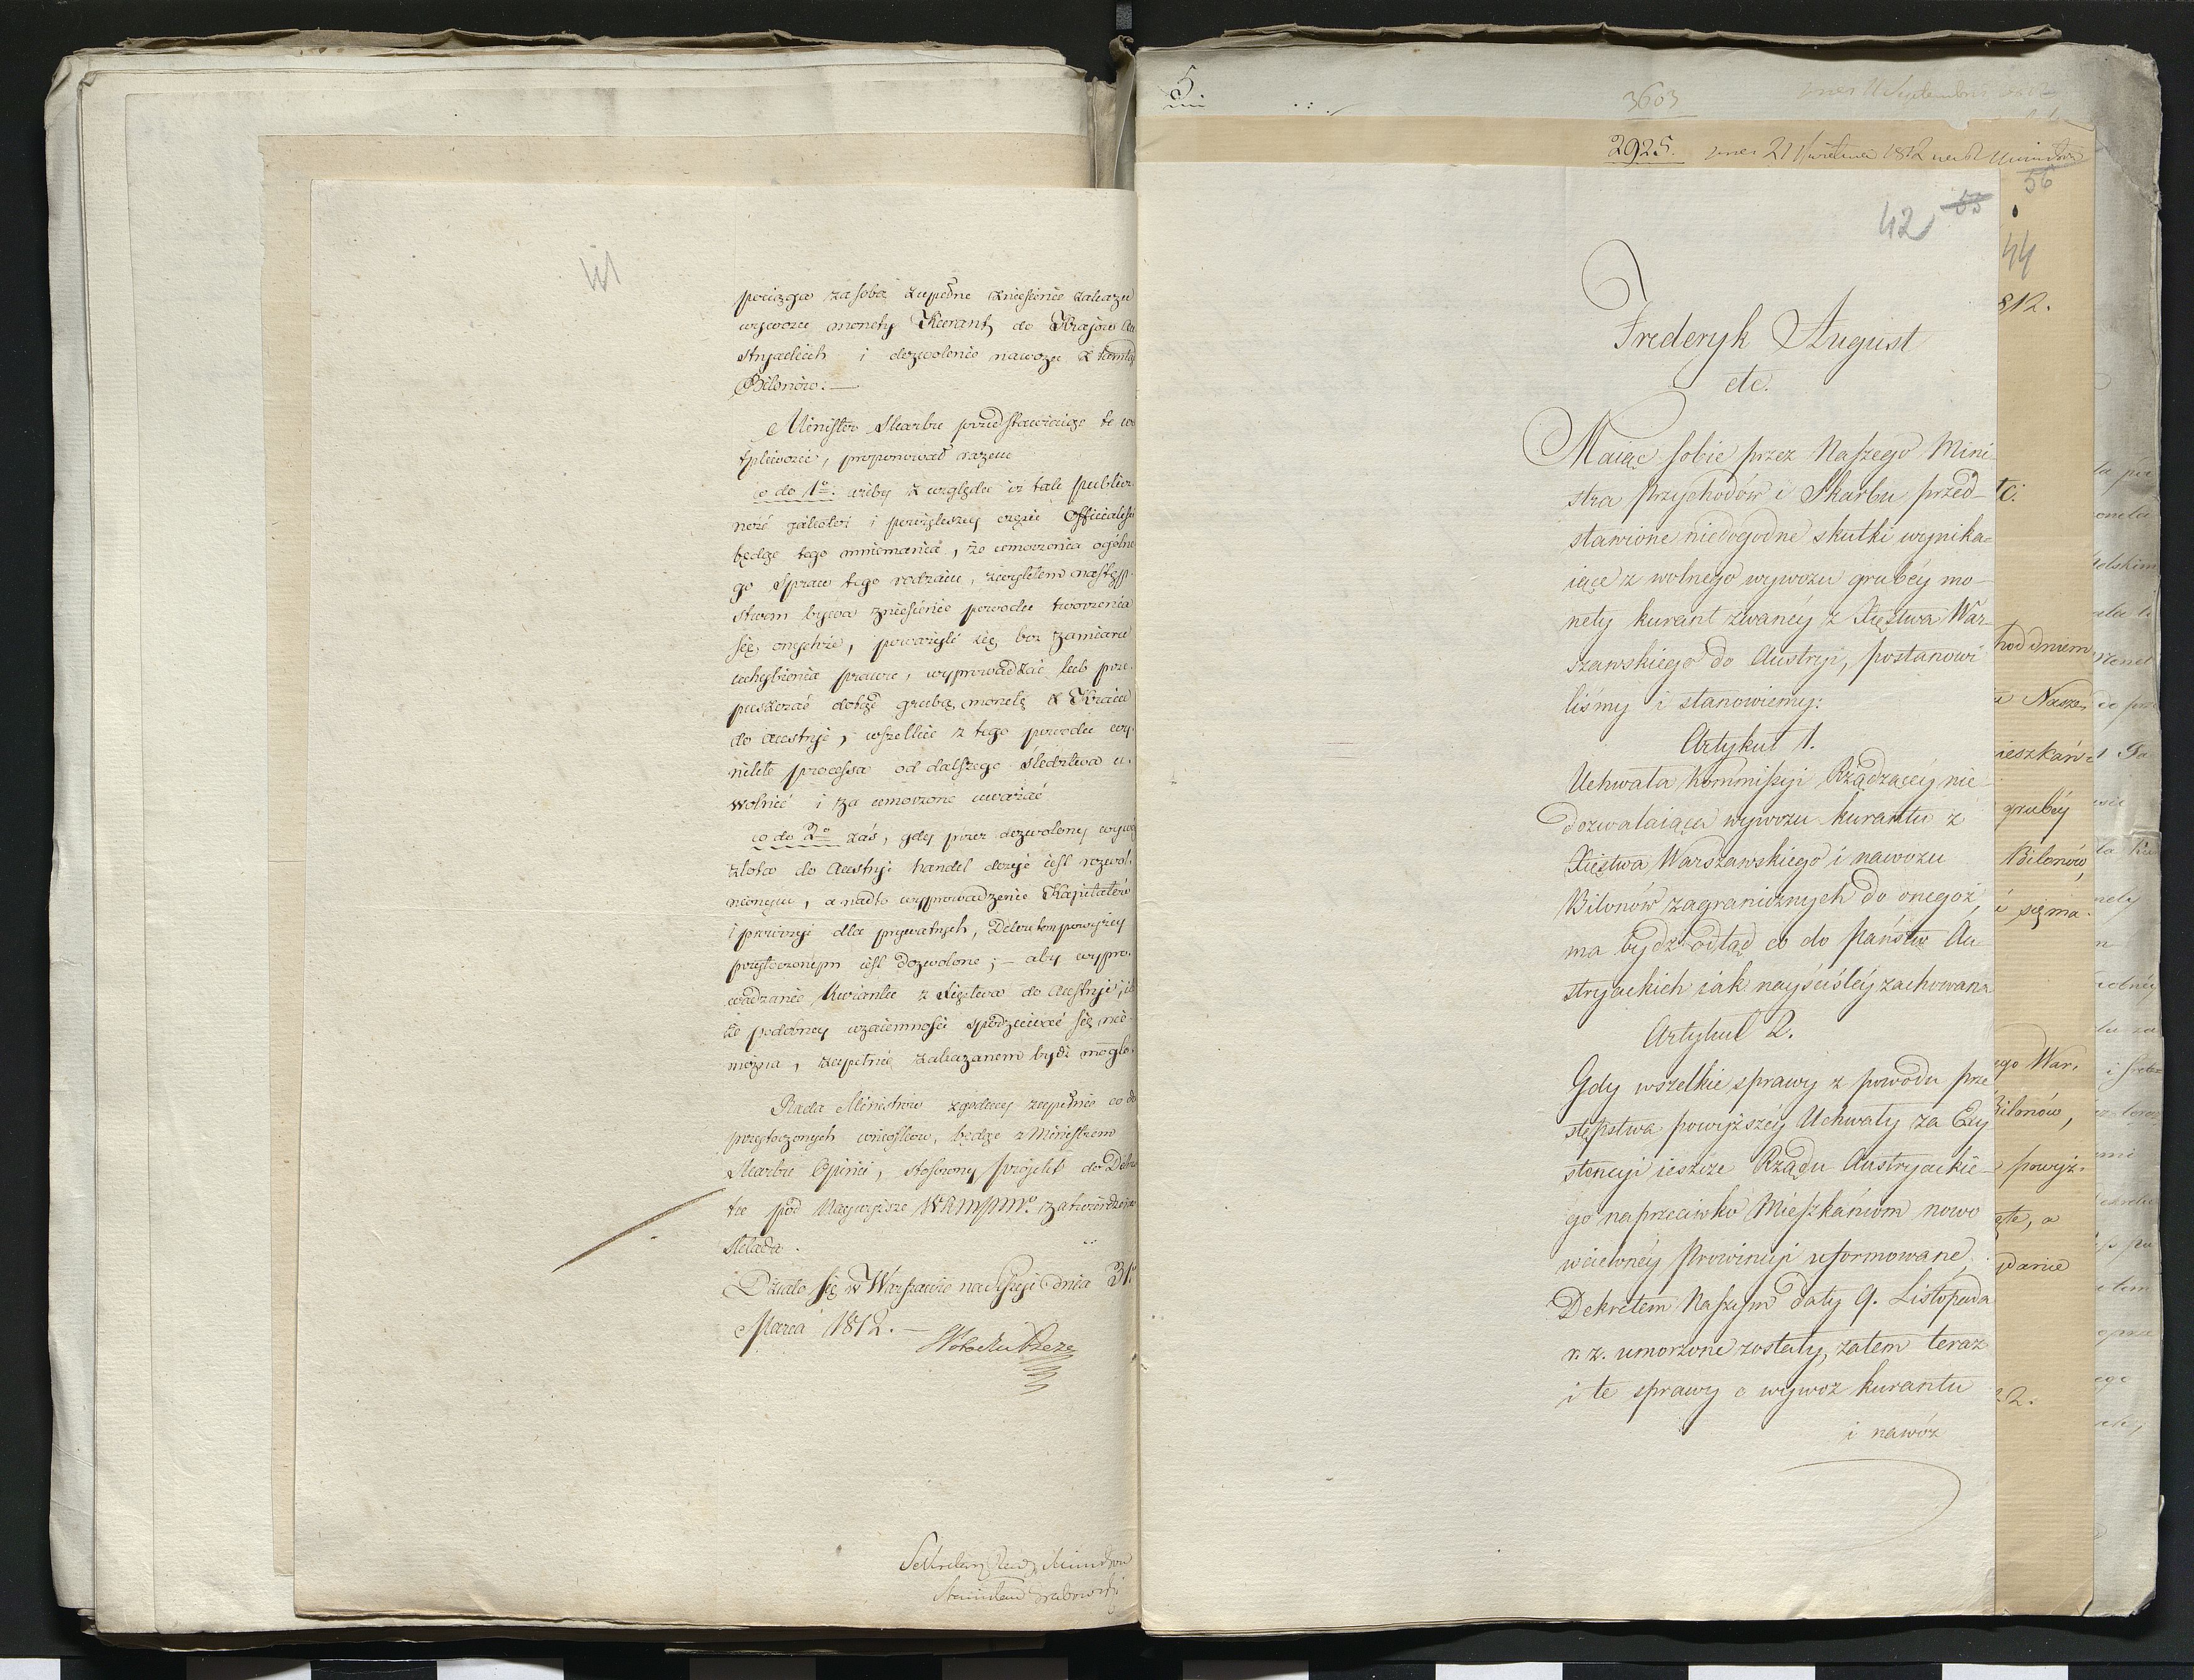 41
pociąga za sobą zupełne zniesienie zakazu
wywozu monety Kurant, do Krajów Au
stryackich i dozwolenie nawozu z tamtąd
Bilonów.—
Minister Skarbu przedstawiaiąc te wą
tpliwości, proponował razem
co do 1o. ażeby z względu iż tak publicz
ność iakoteż i powiększey części Officialiści
będąc tego mniemania, że umorzenia ogólne
go Spraw tego rodzaiu, zwykłem następ
stwem bywa zniesienie powodu tworzenia
się onychże, poważyli się bez zamiaru
uchybienia prawu, wyprowadzać lub prze
puszczać dotąd grubą monetę z Kraiu
do Austryi, wszelkie z tego powodu wy
nikłe processa od dalszego śledztwa u
wolnić i za umorzone uważać
co do 2o zaś, gdy przez dozwolony wywóz
złota do Austryi handel dosyć iest rozwol
nionym, a nadto wyprowadzenie Kapitałów
i prowizyi dla prywatnych, Dekretem powyżey
przytoczonym iest dozwolone;— aby wypro
wadzanie Kurantu z Xięstwa do Austryi,
że podobney wzaiemności spodziewać się nie
można, zupełnie zakazanem bydź mogło.
Rada Ministrów zgodney zupełnie co do
przytoczonych wniosków, będąc z Ministrem
Skarbu Opinii, stosowny projekt do Dekre
tu pod Naywyższe WKMPMo. zatwierdzenie
składa.
Działo się w Warszawie na Sessyi dnia 31.
Marca 1812.—
Sekretarz Rady Ministrów
Stanisław Grabowski
5
3603
2925. 21 Kwietnia 1812
56
55
42
44
812.
Frederyk August
etc.
Maiąc sobie przez Naszego Mini
stra Przychodów i Skarbu przed-
stawione niedogodne skutki wynika=
iące z wolnego wywozu grubéy mo-
nety kurant zwanéy z Xięstwa War-
szawskiego do Austryi, postanowi
liśmy i stanowiemy:
Artykuł 1.
Uchwała Kommissyi Rządzącéy nie
dozwalaiąca wywozu kurantu z
Xięstwa Warszawskiego i nawozu
Bilonów zagranicznych do onegoż,
ma bydź odtąd co do państw Au
stryackich iak nayściśléy zachowana
Artykuł 2.
Gdy wszelkie sprawy z powodu prze
stępstwa powyższéy Uchwały za Exy
stencyi ieszcze Rządu Austryackie-
go naprzeciwko Mieszkańcom nowo
wcielonéy Prowincyi uformowane,
Dekretem Naszym daty 9. Listopada
r. z. umorzone zostały, zatem teraz
i te sprawy o wywoz kurantu
i nawóz
tc.
hod dniem
Nasze
ieszkań
grubéy
Bilonów,
się ma
ego War,
Bilonów,
powyż.
ęte, a
danie